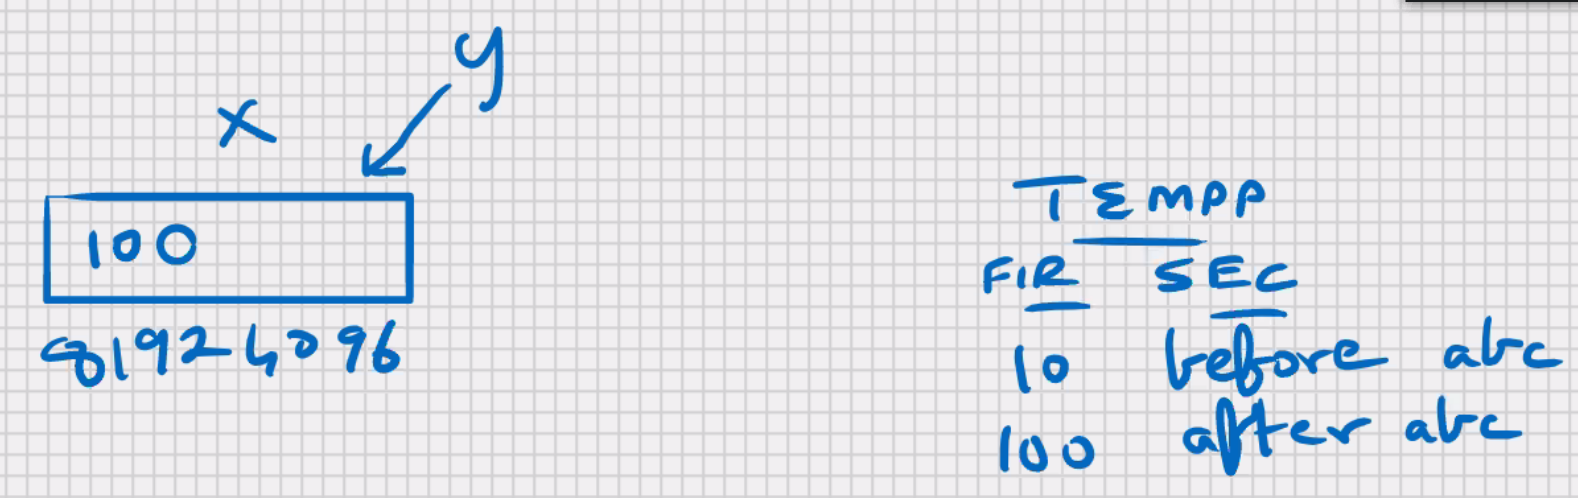 y
x
100
81924096
TEMPP
FIR SEC
10 before abc
100 after abc